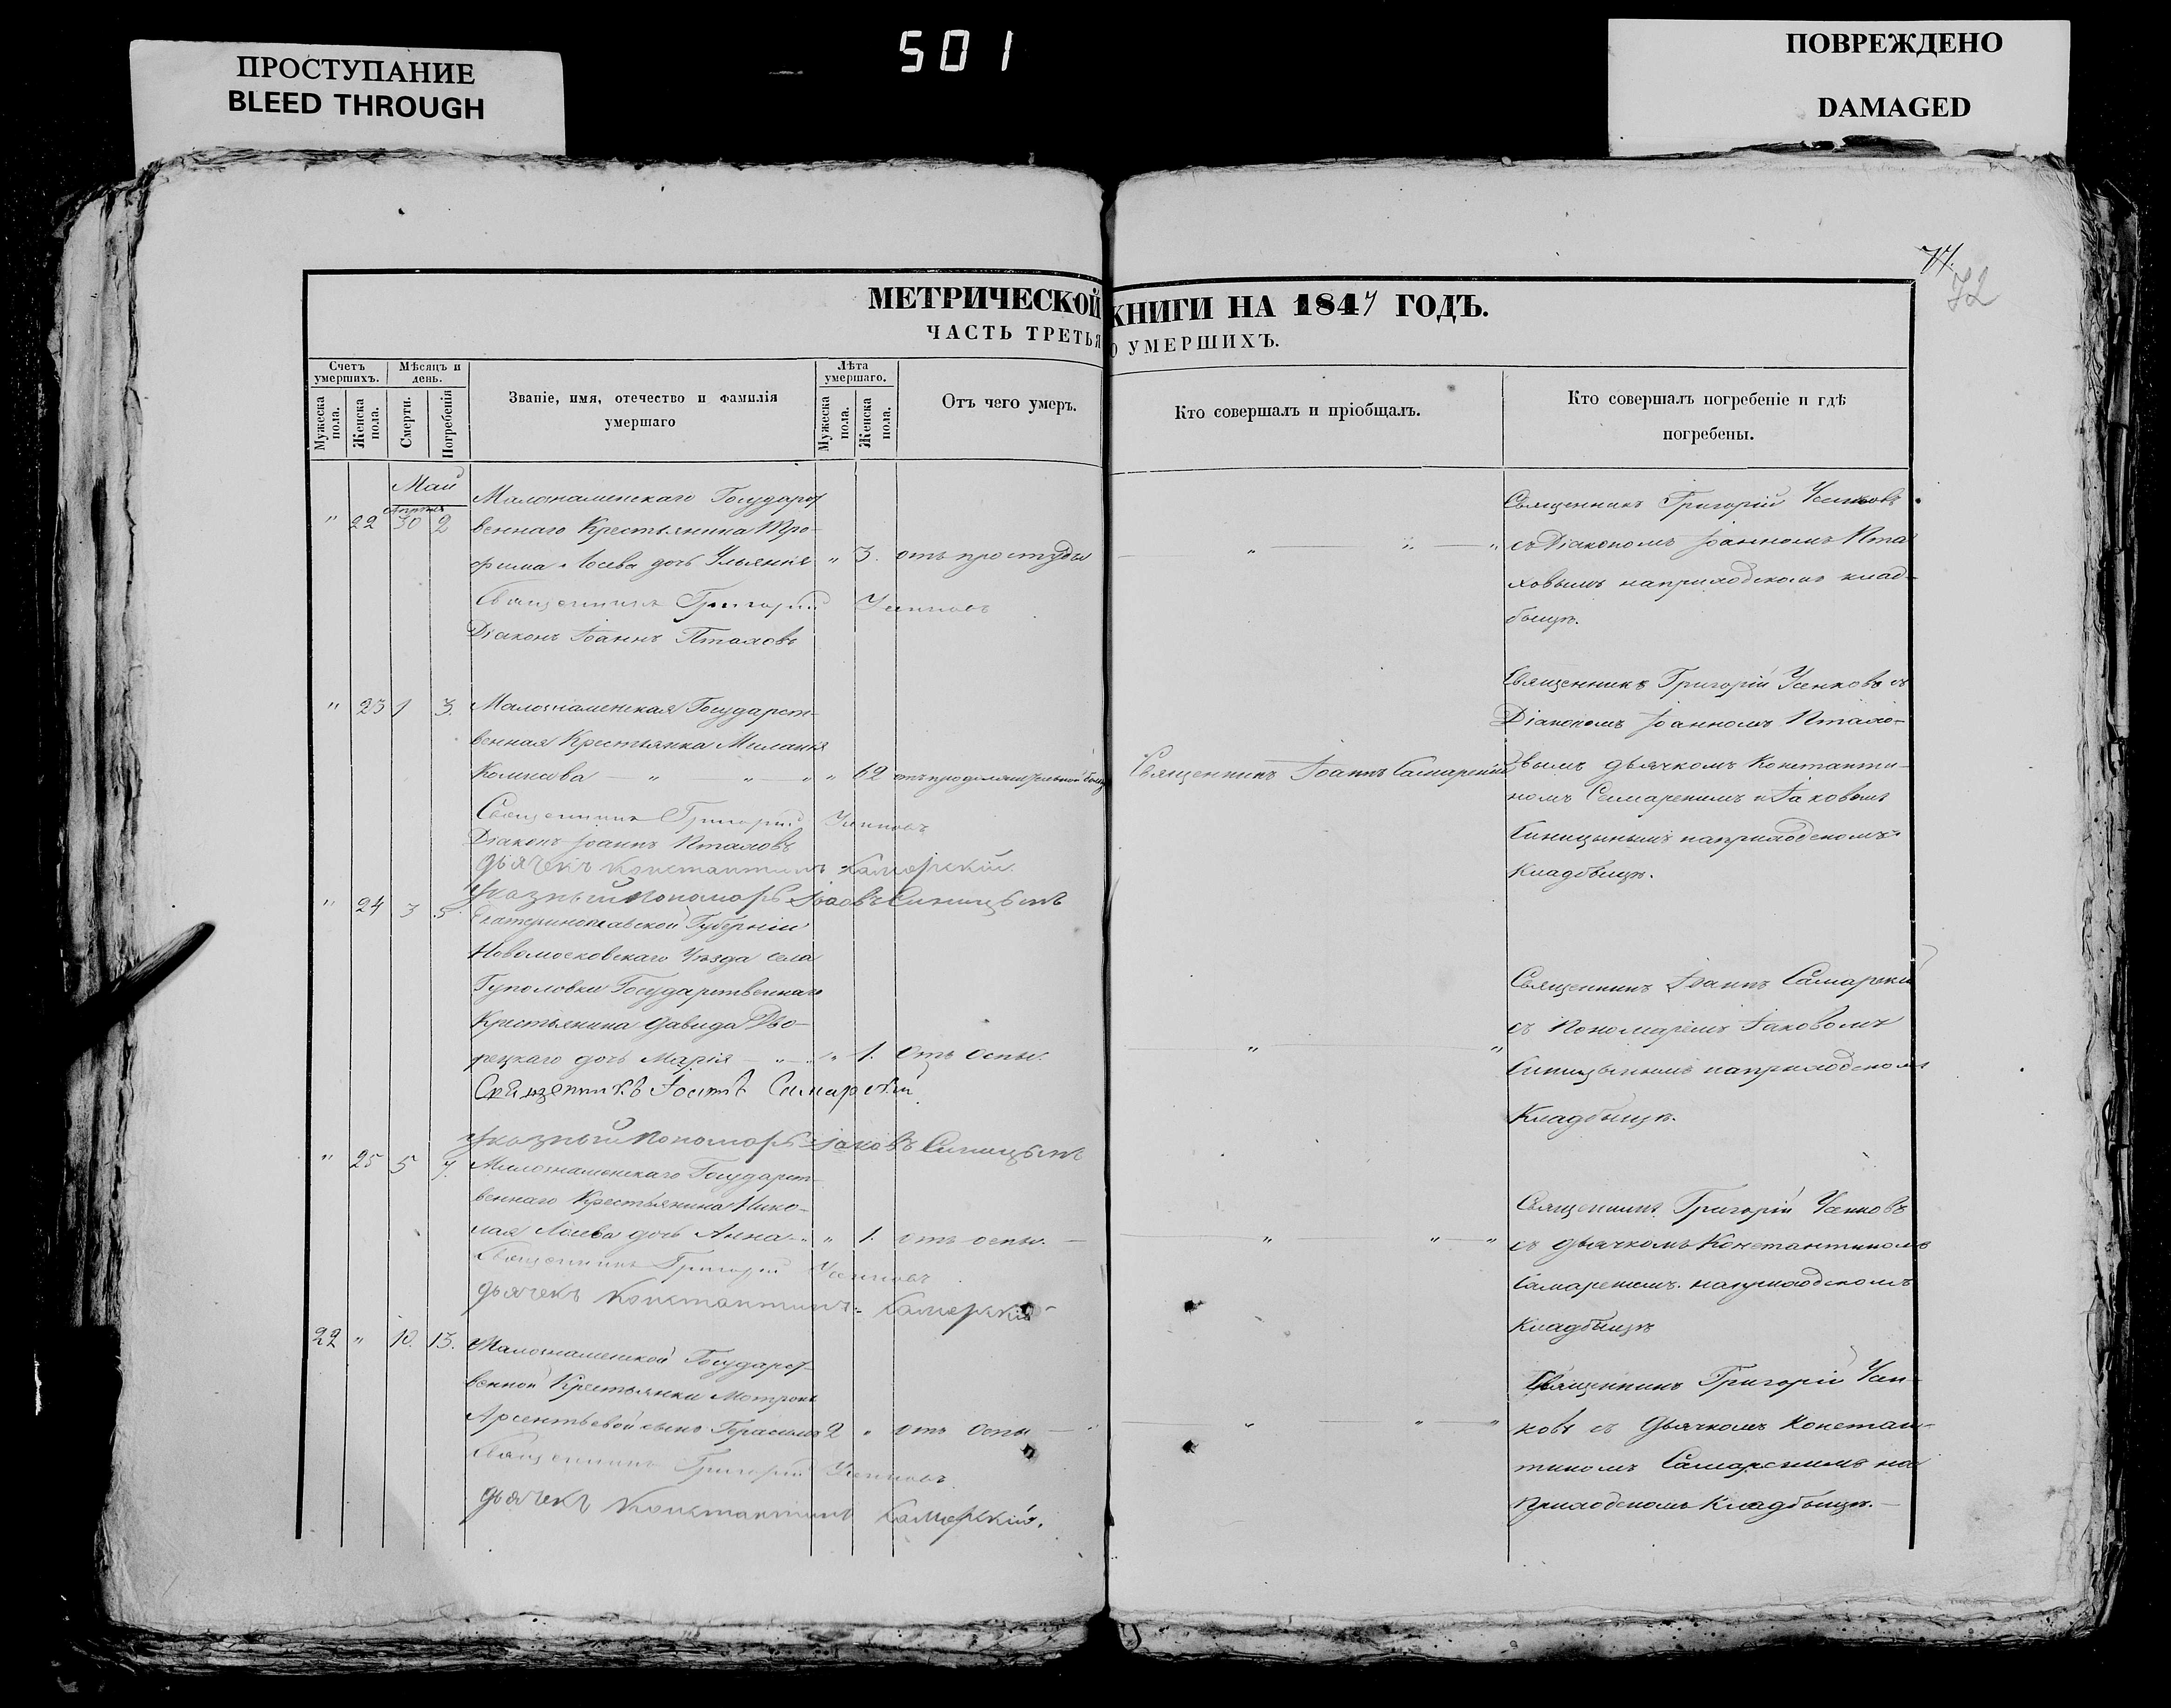 501
ПРОСТУПАНИЕ
BLEED THROUGH
ПОВРЕЖДЕНО
DAMAGED
72
МЕТРИЧЕСКОЙ КНИГИ НА 1847 ГОДЪ.
ЧАСТЬ ТРЕТЬЯ О УМЕРШИХЪ.
Счетъ умершихъ.
Мужеска пола.
Женска пола.
Мѣсяцъ и день.
Смерти.
Погребенія
Званіе, имя, отечество и фамилія
умершаго
Лѣта умершаго.
Мужеска пола.
Женска пола.
Отъ чего умеръ.
Кто совершалъ и пріобщалъ.
Кто совершалъ погребеніе и гдѣ
погребены.
Май
" 22 30 2
Малознаменскаго Государст
веннаго Крестьянина Тро-
фима Лосева дочь Ульянія " 3. отъ простуды
Священникъ Григорій Усенковъ
Діаконъ Іоаннъ Пталовъ
Священникъ Григорій Усенковъ
съ Діакономъ Іоанномъ Пта
ловымъ наприходскомъ клад-
бищѣ.
" 23 1 3.
Малознаменская Государст-
венная Крестьянка Миланія
" " " " 62
Священникъ Григорій Усенковъ
Діаконъ Іоаннъ Пталовъ
Дьячекъ Константинъ Самарскій.
Священникъ Іоаннъ Самарскій
Священникъ Григорій Усенковъ съ
Діакономъ Іоанномъ Птало-
вымъ дьячкомъ Константи-
номъ Самарскимъ и Іаковомъ
Синицынымъ наприходскомъ
Кладбищѣ.
" 24 3 5.
Указный Пономарь Іаковъ Синицынъ
Екатеринославской Губерніи
Новомосковскаго Уѣзда села
Гуполовки Государственнаго
Крестьянина Давида Дво-
рецкаго дочь Марія " " 1. Отъ оспы.
Священникъ Іоаннъ Самарскій
Указный Пономарь Іаковъ Синицынъ
Священникъ Іоаннъ Самарскій
съ Пономаремъ Іаковомъ
Синицынымъ наприходскомъ
Кладбищѣ.
" 25 5 7.
Малознаменскаго Государст-
веннаго Крестьянина Нико-
лая Лосева дочь Анна " 1. отъ оспы.
Священникъ Григорій Усенковъ
Дьячекъ Константинъ Самарскій
Священникъ Григорій Усенковъ
съ дьячкомъ Константиномъ
Самарскимъ наприходскомъ
Кладбищѣ
22 " 10. 13.
Малознаменской Государст-
венной Крестьянки Мотроны
Арсентьевой сынъ Герасимъ 2 " отъ оспы
Священникъ Григорій Усенковъ
Дьячекъ Константинъ Самарскій.
Священникъ Григорій Усен-
ковъ съ Дьячкомъ Констан-
тиномъ Самарскимъ на
приходскомъ Кладбищѣ.